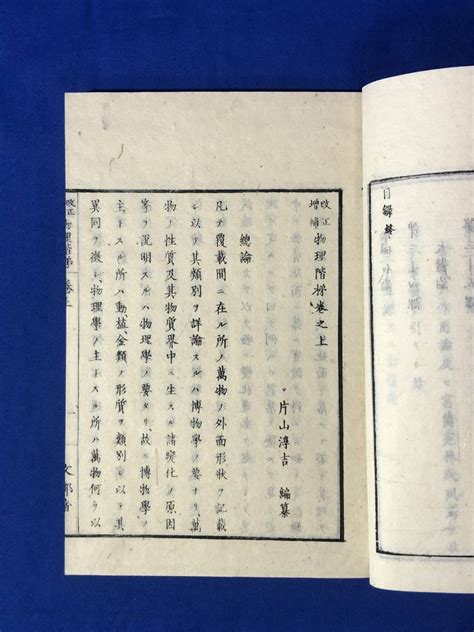 目録終
改正増補物理階梯卷之上
片山淳吉 編纂
總論
凡テ覆載間ニ在ル所ノ萬物ノ外面形狀ヲ記載
シ以テ其類別ヲ詳論スルハ博物學ノ要ナリ萬
物ノ性質及其物質界中ニ生スル諸變化ノ原因
等ヲ説明スルハ物理學ノ要タリ故ニ博物學ノ
主トスル所ハ動植金類ノ形質ヲ類別シ以テ其
異同ヲ徴シ物理學ノ主トスル所ハ萬物何ヲ以
改正 物理階梯 卷之上
一
文部省